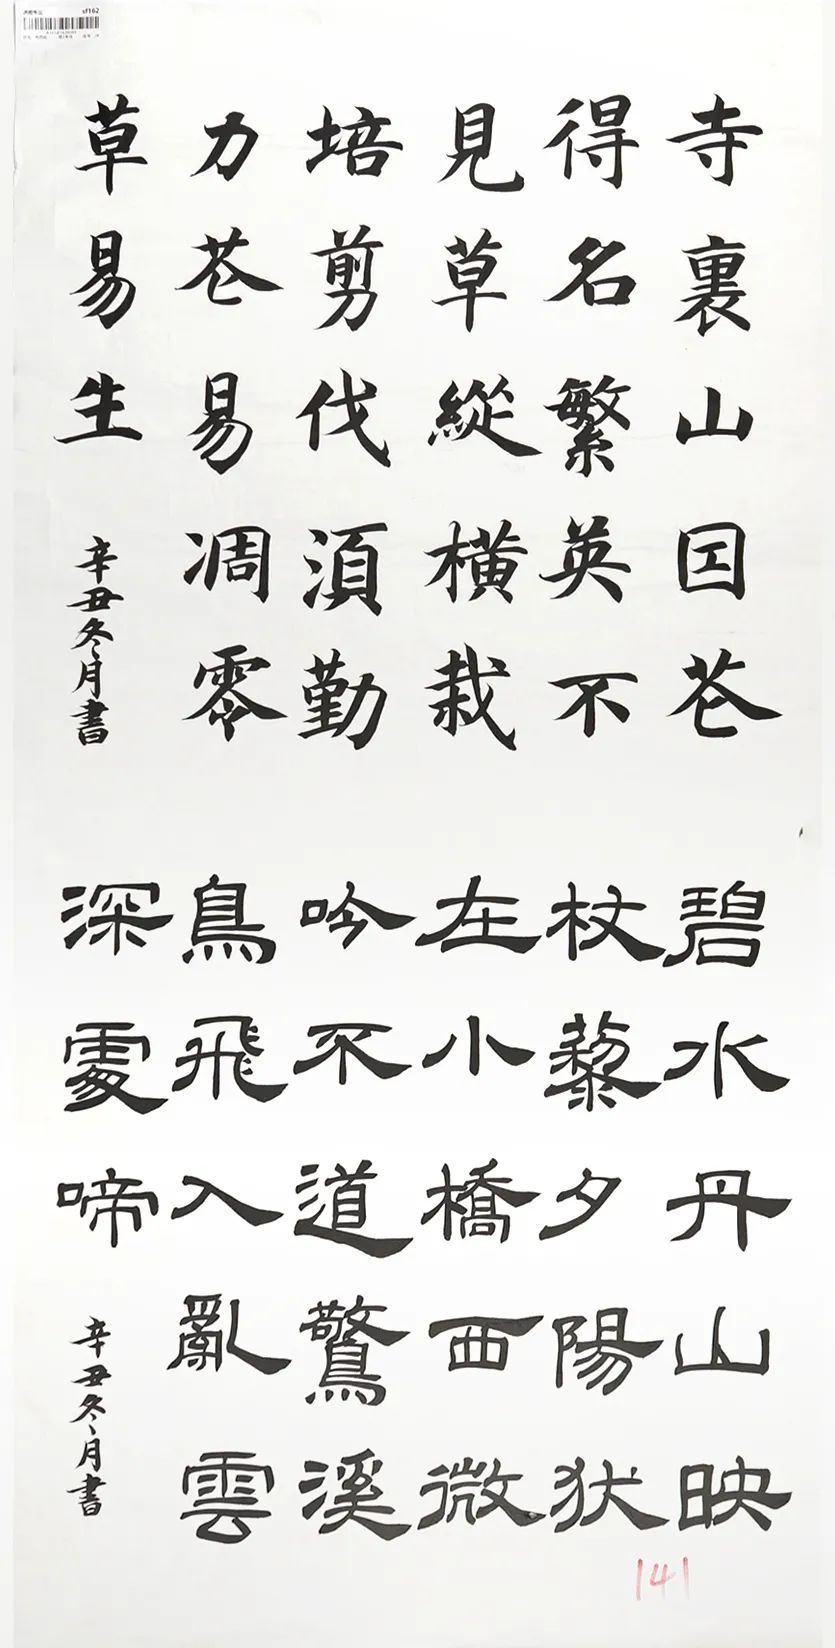 sf162
寺裏山因花
得名繁英不
見草縱橫栽
培剪伐須勤
力花易凋零
草易生
辛丑冬月書
碧水丹山映
杖藜夕陽犹
在小橋西微
吟不道驚溪
鳥飛入亂雲
深處啼
辛丑冬月書
141